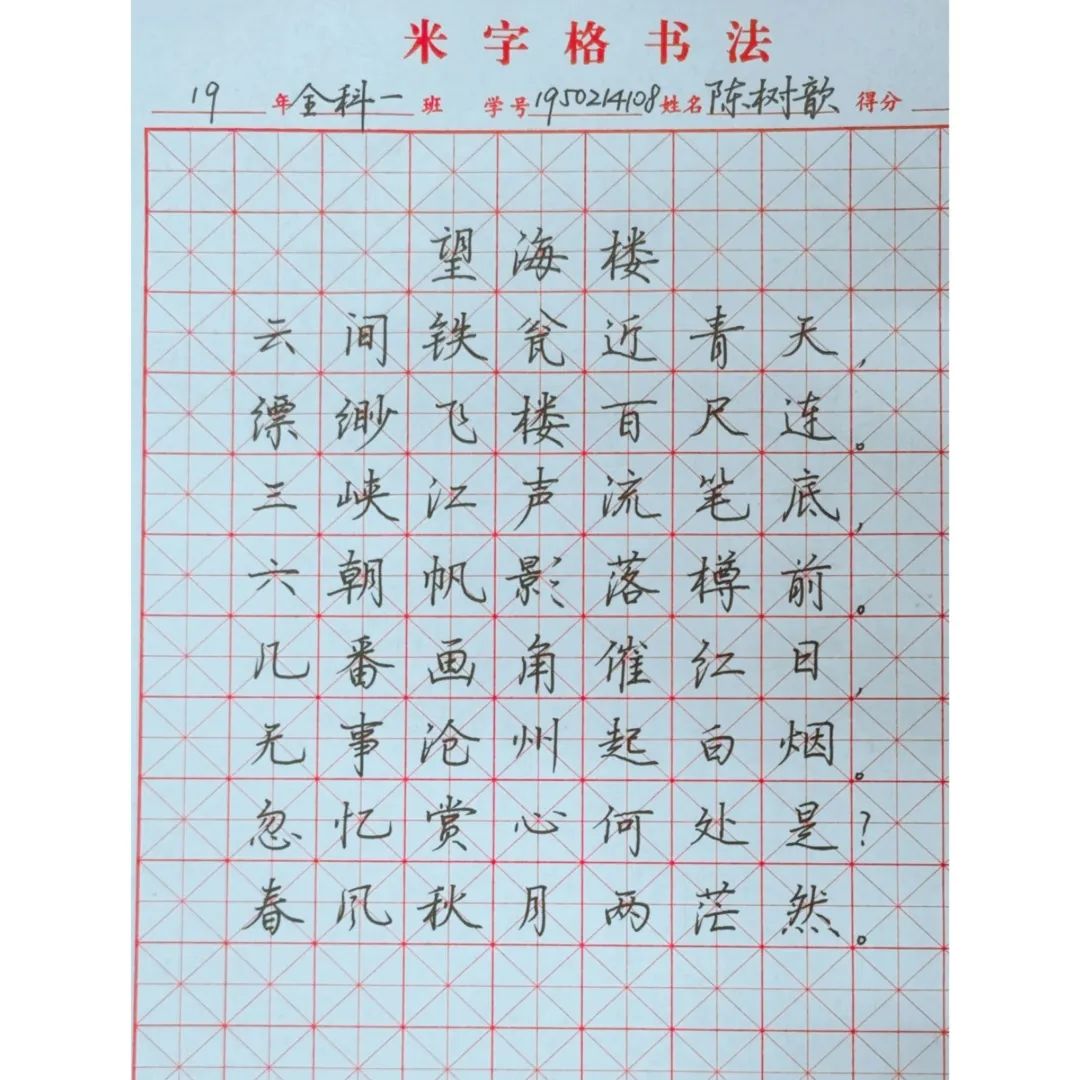 米字格书法
19年全科一班 学号1950214108姓名陈树歆 得分
望海楼
云间铁瓮近青天，
缥缈飞楼百尺连。
三峡江声流笔底，
六朝帆影落樽前。
几番画角催红日，
无事沧州起白烟。
忽忆赏心何处是？
春风秋月两茫然。